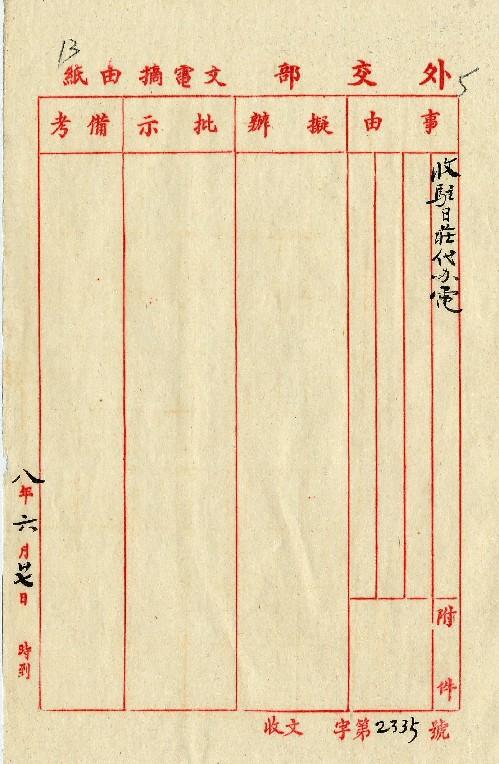 13
外交部文電摘由紙
5
事由
擬辦
批示
備考
收駐日莊代办電
附件
八年六月廿七日 時到
收文 字第2335號